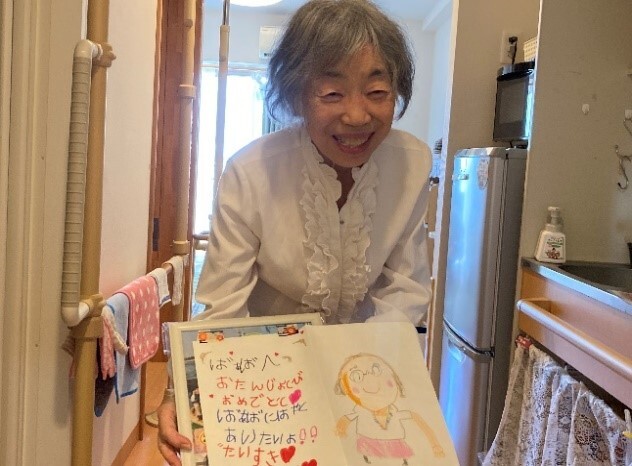 ばぁばへ
おたんじょうび
おめでとう
ばぁばにはやく
あいたいよ!!
だいすき